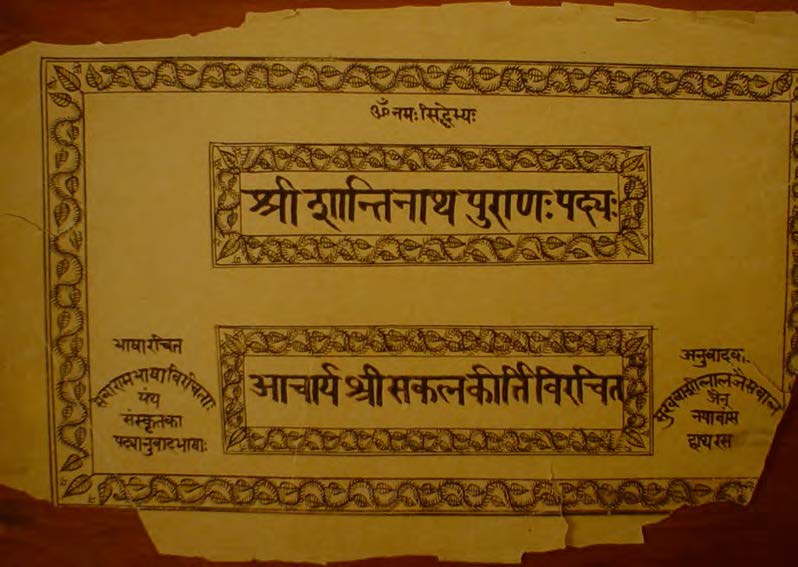 ॐ नमः सिद्धेम्यः
श्री शान्तिनाथ पुराणः पद्यः
आचार्य श्री सकलकीर्ति विरचित
भाषा रचित
सेवाराम भाषा विरचिताः
संस्कृतका
पद्यानुवाद भाषाः
अनुवादक.
जैन
नयावांस
हाथरस